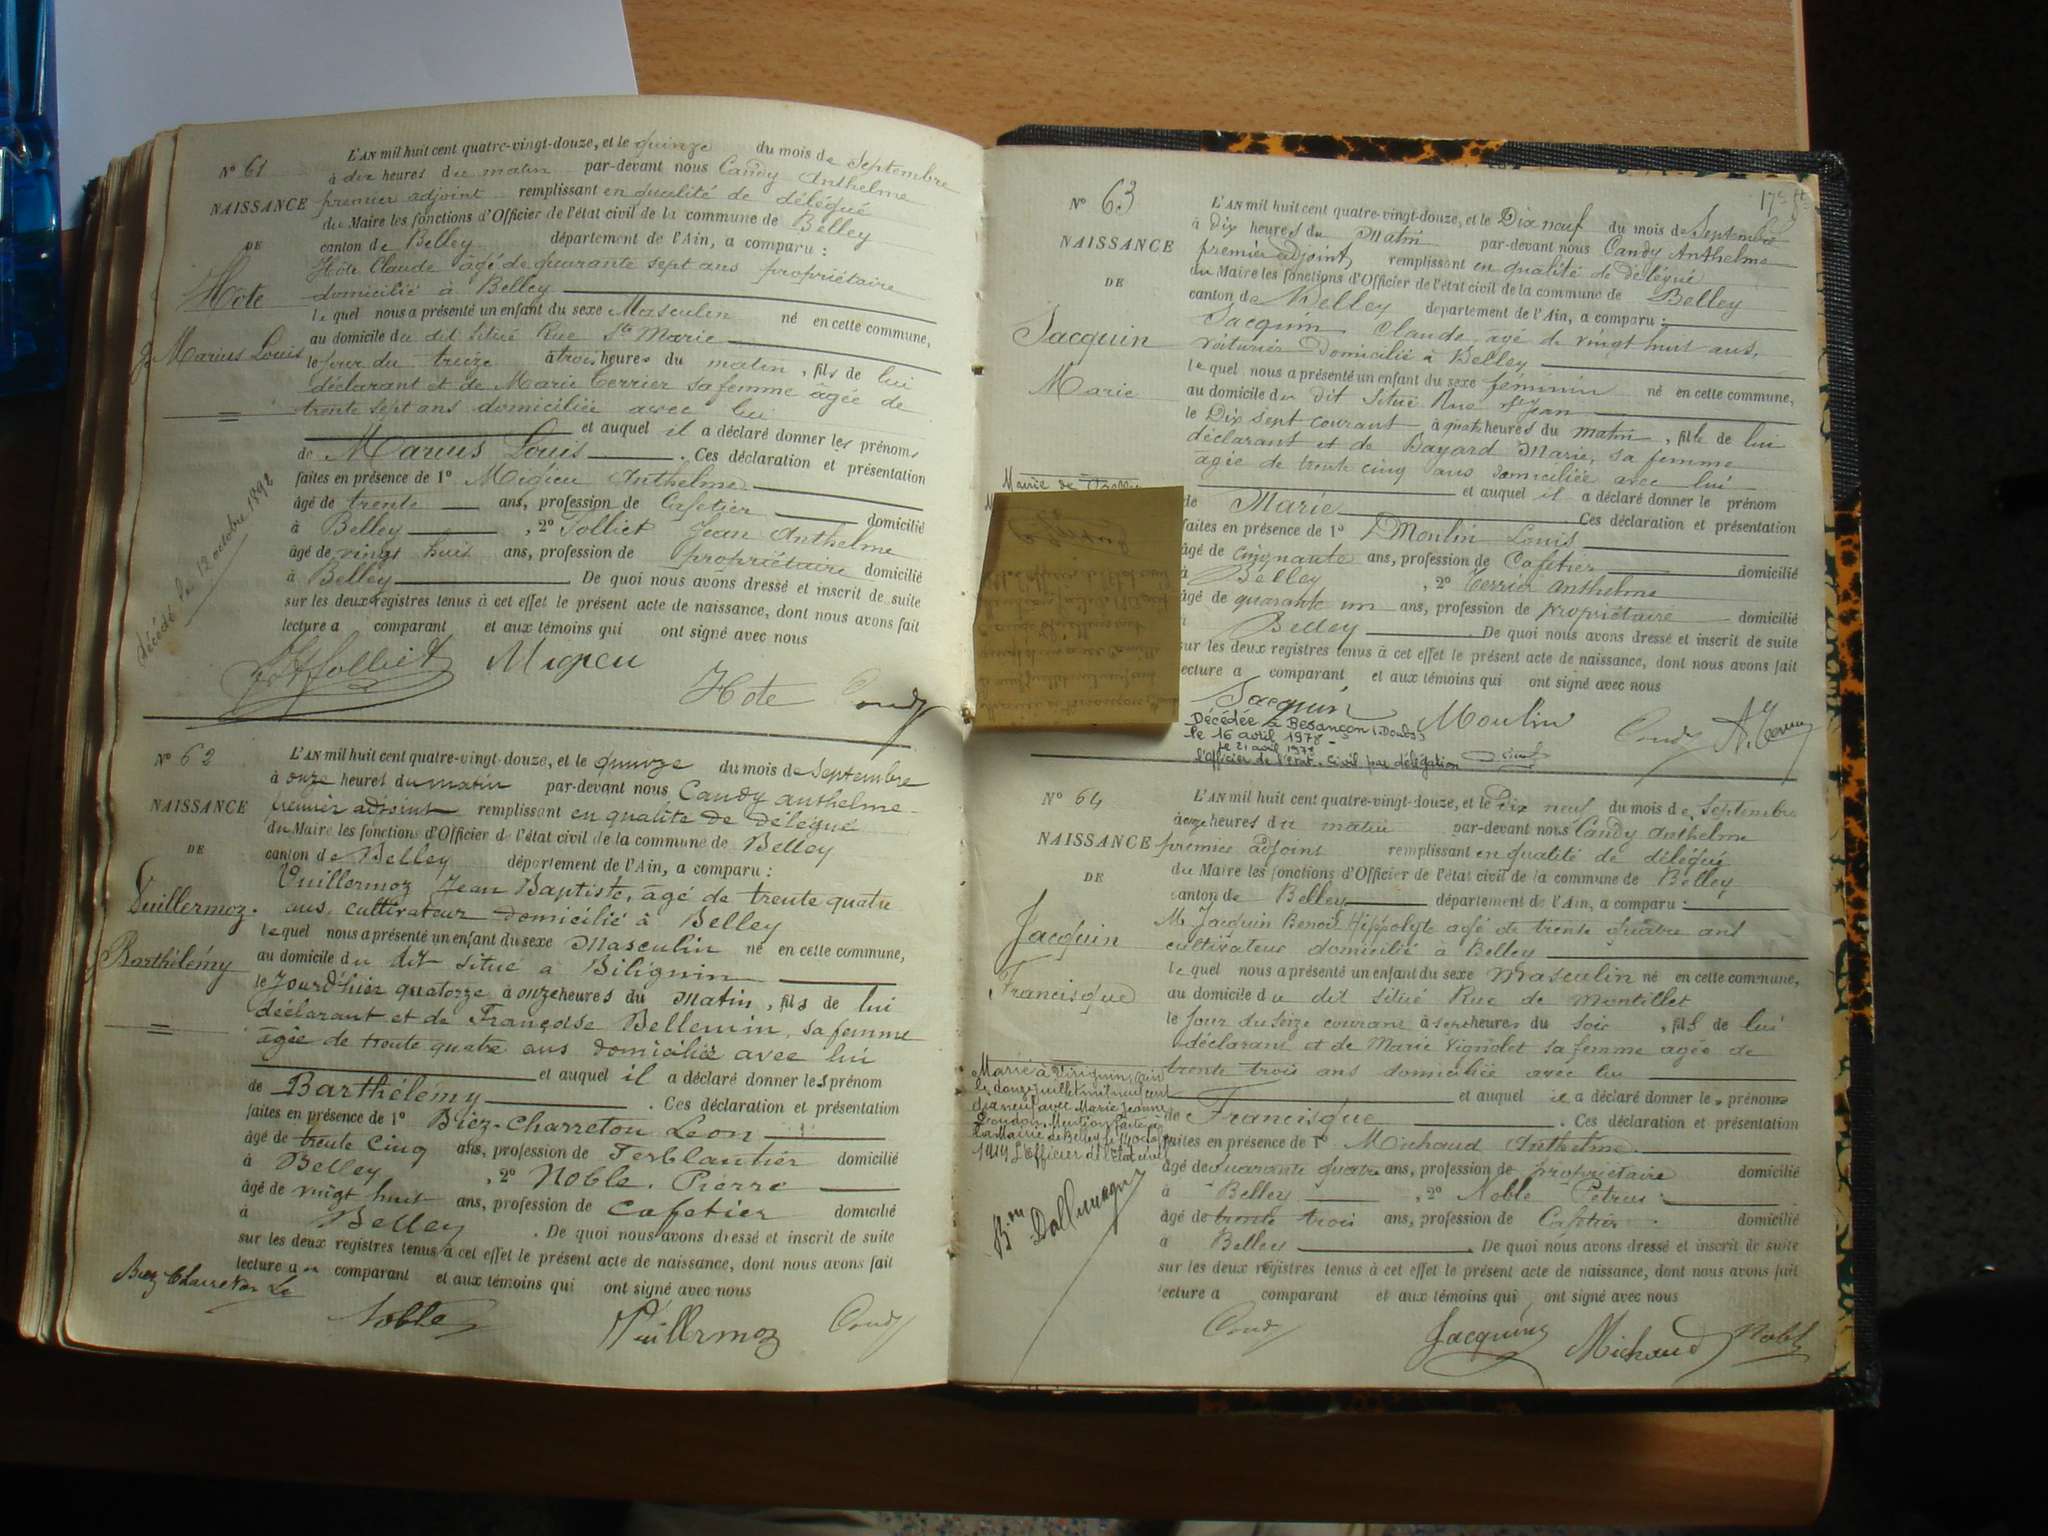 N° 61
L'AN mil huit cent quatre-vingt-douze, et le quinze du mois de Septembre
à dix heures du matin par-devant nous Candy Anthelme
NAISSANCE premier adjoint remplissant en qualité de délégué
du Maire les fonctions d'Officier de l'état civil de la commune de Belley
DE
canton de Belley département de l'Ain, a comparu :
Hôte Claude âgé de quarante sept ans propriétaire
Hote
domicilié à Belley
lequel nous a présenté un enfant du sexe Masculin né en cette commune,
au domicile du dit situé Rue Ste Marie
Marius Louis
le jour du treize à trois heures du matin, fils de lui
déclarant et de Marie Terrier sa femme âgée de
trente sept ans domiciliée avec lui
et auquel il a déclaré donner les prénoms
de Marius Louis. Ces déclaration et présentation
faites en présence de 1° Migieu Anthelme
âgé de trente ans, profession de Cafetier domicilié
à Belley, 2° Tolliet Jean Anthelme
âgé de vingt huit ans, profession de propriétaire domicilié
à Belley. De quoi nous avons dressé et inscrit de suite
sur les deux registres tenus à cet effet le présent acte de naissance, dont nous avons fait
lecture a comparant et aux témoins qui ont signé avec nous
décédé le 12 octobre 1892
JATolliet Migieu
Hote Candy
N° 62
L'AN mil huit cent quatre-vingt-douze, et le quinze du mois de Septembre
à onze heures du matin par-devant nous Candy anthelme
NAISSANCE
premier adjoint remplissant en qualité de délégué
du Maire les fonctions d'Officier de l'état civil de la commune de Belley
DE
canton de Belley département de l'Ain, a comparu :
Vuillermoz Jean Baptiste, âgé de trente quatre
Vuillermoz.
ans, cultivateur domicilié à Belley
lequel nous a présenté un enfant du sexe Masculin né en cette commune,
Barthélémy
au domicile du dit situé à Bilignin
le Jourd'hier quatorze à onze heures du Matin, fils de lui
déclarant et de Françoise Bellemin, sa femme
âgée de trente quatre ans domiciliée avec lui
et auquel il a déclaré donner les prénom
de Barthélémy. Ces déclaration et présentation
faites en présence de 1° Biez-Charreton Léon
âgé de trente cinq ans, profession de Ferblantier domicilié
à Belley, 2° Noble. Pierre
âgé de vingt huit ans, profession de Cafetier domicilié
à Belley. De quoi nous avons dressé et inscrit de suite
sur les deux registres tenus à cet effet le présent acte de naissance, dont nous avons fait
lecture au comparant et aux témoins qui ont signé avec nous
Biez Charreton Le
Noble Vuillermoz Candy
N° 63
L'AN mil huit cent quatre-vingt-douze, et le Dix neuf du mois de Septembre
à dix heures du Matin par-devant nous Candy Anthelme
NAISSANCE
premier adjoint remplissant en qualité de délégué
du Maire les fonctions d'Officier de l'état civil de la commune de Belley
DE
canton de Belley département de l'Ain, a comparu :
Jacquin Claude, âgé de vingt huit ans,
Jacquin
voiturier domicilié à Belley
lequel nous a présenté un enfant du sexe féminin né en cette commune,
Marie
au domicile du dit situé Rue St Jean
le Dix sept courant à quatre heures du matin, fille de lui
déclarant et de Bayard Marie, sa femme
âgée de trente cinq ans domiciliée avec lui
Mairie de Belley
et auquel il a déclaré donner le prénom
de Marie Ces déclaration et présentation
faites en présence de 1° Moulin Louis
âgé de cinquante ans, profession de Cafetier domicilié
à Belley, 2° Terrier anthelme
âgé de quarante un ans, profession de propriétaire domicilié
Belley. De quoi nous avons dressé et inscrit de suite
sur les deux registres tenus à cet effet le présent acte de naissance, dont nous avons fait
lecture a comparant et aux témoins qui ont signé avec nous
Jacquin Moulin Candy A. Terrier
Décédée à Besançon (Doubs)
le 16 avril 1978 -
le 21 avril 1978
l'officier de l'état-Civil par délégation
N° 64
L'AN mil huit cent quatre-vingt-douze, et le Dix neuf du mois de Septembre
à onze heures du matin par-devant nous Candy anthelme
NAISSANCE premier adjoint remplissant en qualité de délégué
du Maire les fonctions d'Officier de l'état civil de la commune de Belley
DE
canton de Belley département de l'Ain, a comparu :
M Jacquin Benoit Hippolyte agé de trente quatre ans
Jacquin
cultivateur domicilié à Belley
lequel nous a présenté un enfant du sexe Masculin né en cette commune,
Francisque
au domicile du dit situé Rue de Montillet
le Jour du Seize courant à sept heures du soir, fils de lui
déclarant et de Marie Vignolet sa femme agée de
trente trois ans domiciliée avec lui
et auquel il a déclaré donner les prénoms
de Francisque. Ces déclaration et présentation
faites en présence de 1° Michaud Anthelme
âgé de Quarante quatre ans, profession de propriétaire domicilié
à Belley, 2° Noble Petrus
âgé de trente trois ans, profession de Cafetier domicilié
à Belley. De quoi nous avons dressé et inscrit de suite
sur les deux registres tenus à cet effet le présent acte de naissance, dont nous avons fait
lecture a comparant et aux témoins qui ont signé avec nous
Marié à
le douze juillet mil neuf cent
dix neuf avec Marie Jeanne
Mention faite
la Mairie de Belley le
1919 L'Officier de l'état civil
Bon Dallemagne
Candy Jacquin Michaud Noble